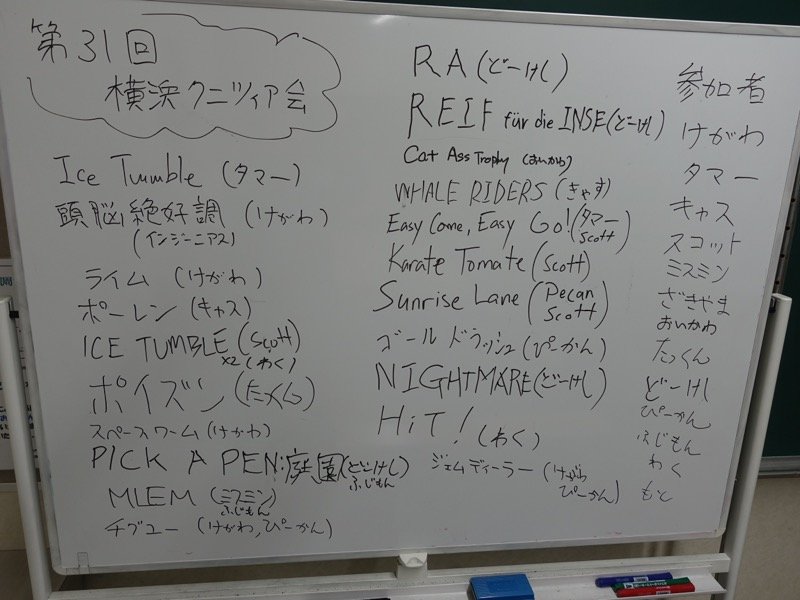 第31回
横浜クニツィア会
Ice Tumble (タマー)
頭脳絶好調 (けがわ)
(インジーニアス)
ライム (けがわ)
ポーレン (キャス)
ICE TUMBLE (Scott)
x2 (わく)
ポイズン (たっくん)
スペースワーム (けがわ)
PICK A PEN:庭園 (どーけし)
ふじもん
MLEM (ミスミン)
ふじもん
チグユー (けがわ,ぴーかん)
RA (どーけし)
REIF für die INSE (どーけし)
Cat Ass Trophy (おいかわ)
WHALE RIDERS (きゃす)
Easy Come, Easy Go! (タマー
Scott)
Karate Tomate (Scott)
Sunrise Lane (Pecan
Scott)
ゴールドラッシュ (ぴーかん)
NIGHTMARE (どーけし)
HiT! (わく)
ジェムディーラー (けがわ
ぴーかん)
参加者
けがわ
タマー
キャス
スコット
ミスミン
ざきやま
おいかわ
たっくん
どーけし
ぴーかん
ふじもん
わく
もと